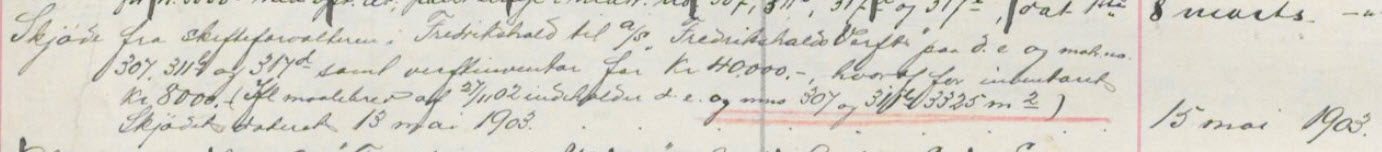 og 317
8 marts.
Skjöde fra skifteforvalteren i Fredrikshald til a/s. "Fredrikshalds Værft" paa d. e og matr. no.
307, 311 og 317d samt verftsinventar for Kr 40.000.-, hvoraf for inventaret
Kr. 8000.- (Ifl maalebrev af 27/11 02 indeholder d. e. og mno 307 og 311 3325 m2)
Skjödet dateret 13 mai 1903. 15 mai 1903.